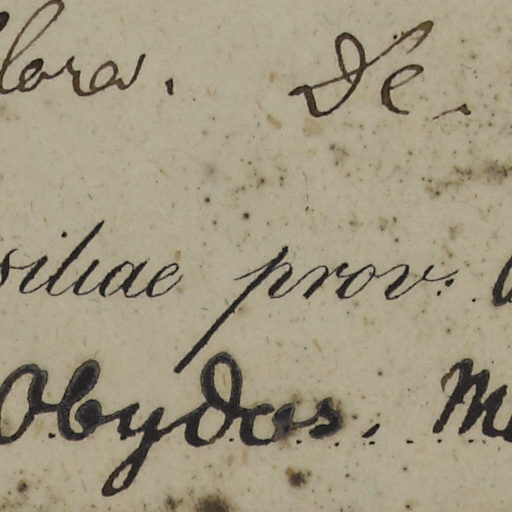 lora. De.
siliae prov.
Obydos.